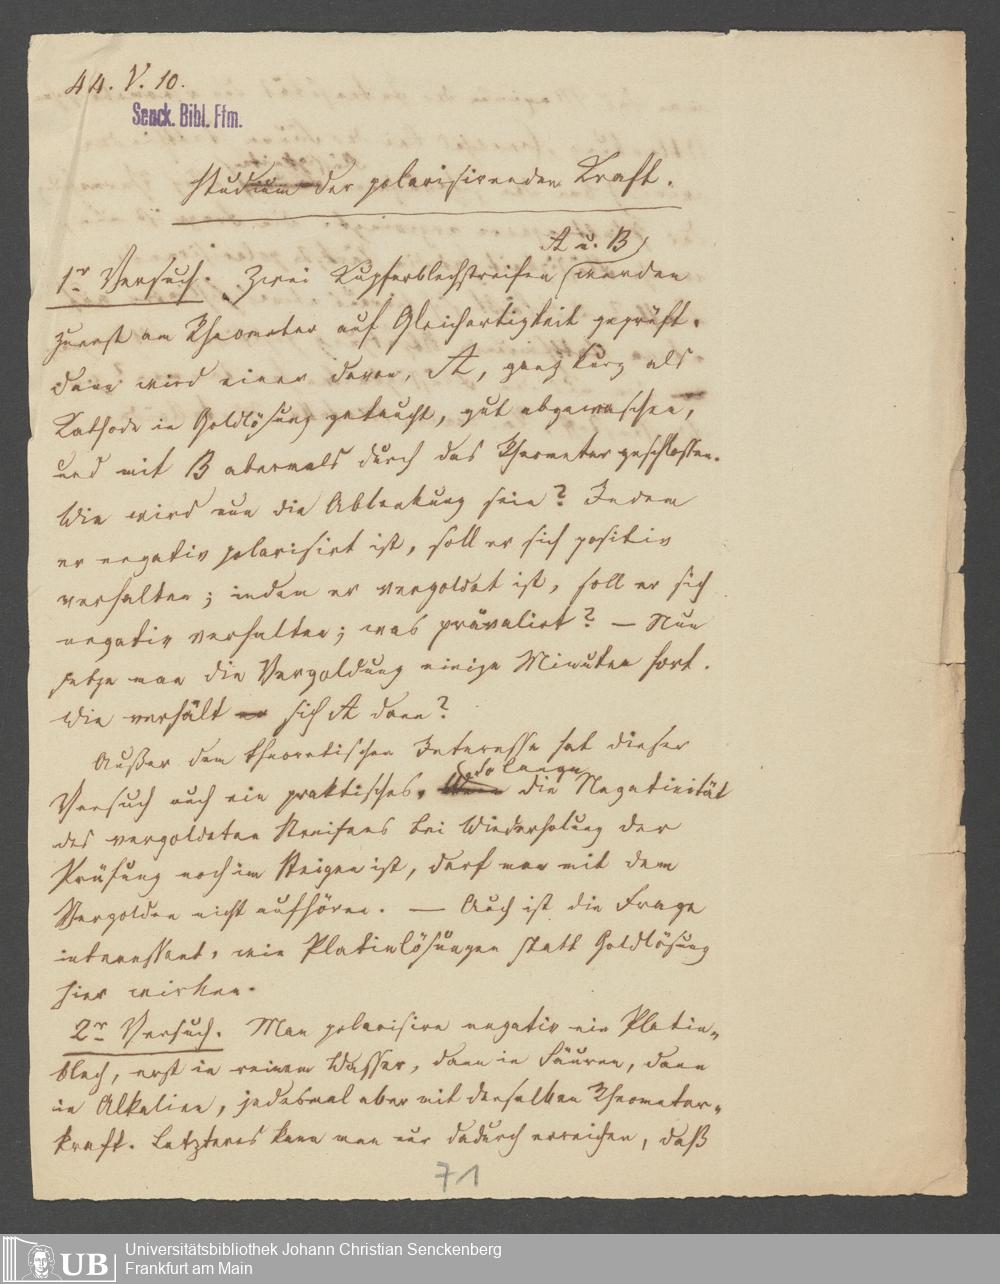 44. V. 10.
Senck. Bibl. Ffm.
Studium der polarisirenden Kraft.
A u. B)
1r Versuch. Zwei Kupferblechstreifen (werden
zuerst am Rheometer auf Gleichartigkeit geprüft.
Dann wird einer davon, A, ganz kurz als
Kathode in Goldlösung getaucht, gut abgewaschen,
und mit B abermals durch das Rheometer geschlossen.
Wie wird nun die Ablenkung sein? Indem
er negativ polarisirt ist, soll er sich positiv
verhalten; indem er vergoldet ist, soll er sich
negativ verhalten; was prävalirt? — Nun
setze man die Vergoldung einige Minuten fort.
Wie verhält er sich A dann?
Außer dem theoretischen Interesse hat dieser
so lange
Versuch auch ein praktisches. Wenn die Negativität
des vergoldeten Streifens bei Wiederholung der
Prüfung noch im Steigen ist, darf man mit dem
Vergolden nicht aufhören. — Auch ist die Frage
interessant, wie Platinlösungen statt Goldlösung
hier wirken.
2r Versuch. Man polarisire negativ ein Platin-
blech, erst in reinem Wasser, dann in Säuren, dann
in Alkalien, jedesmal aber mit derselben Rheometer-
kraft. Letzteres kann man nur dadurch erreichen, daß
71
UB
Universitätsbibliothek Johann Christian Senckenberg
Frankfurt am Main